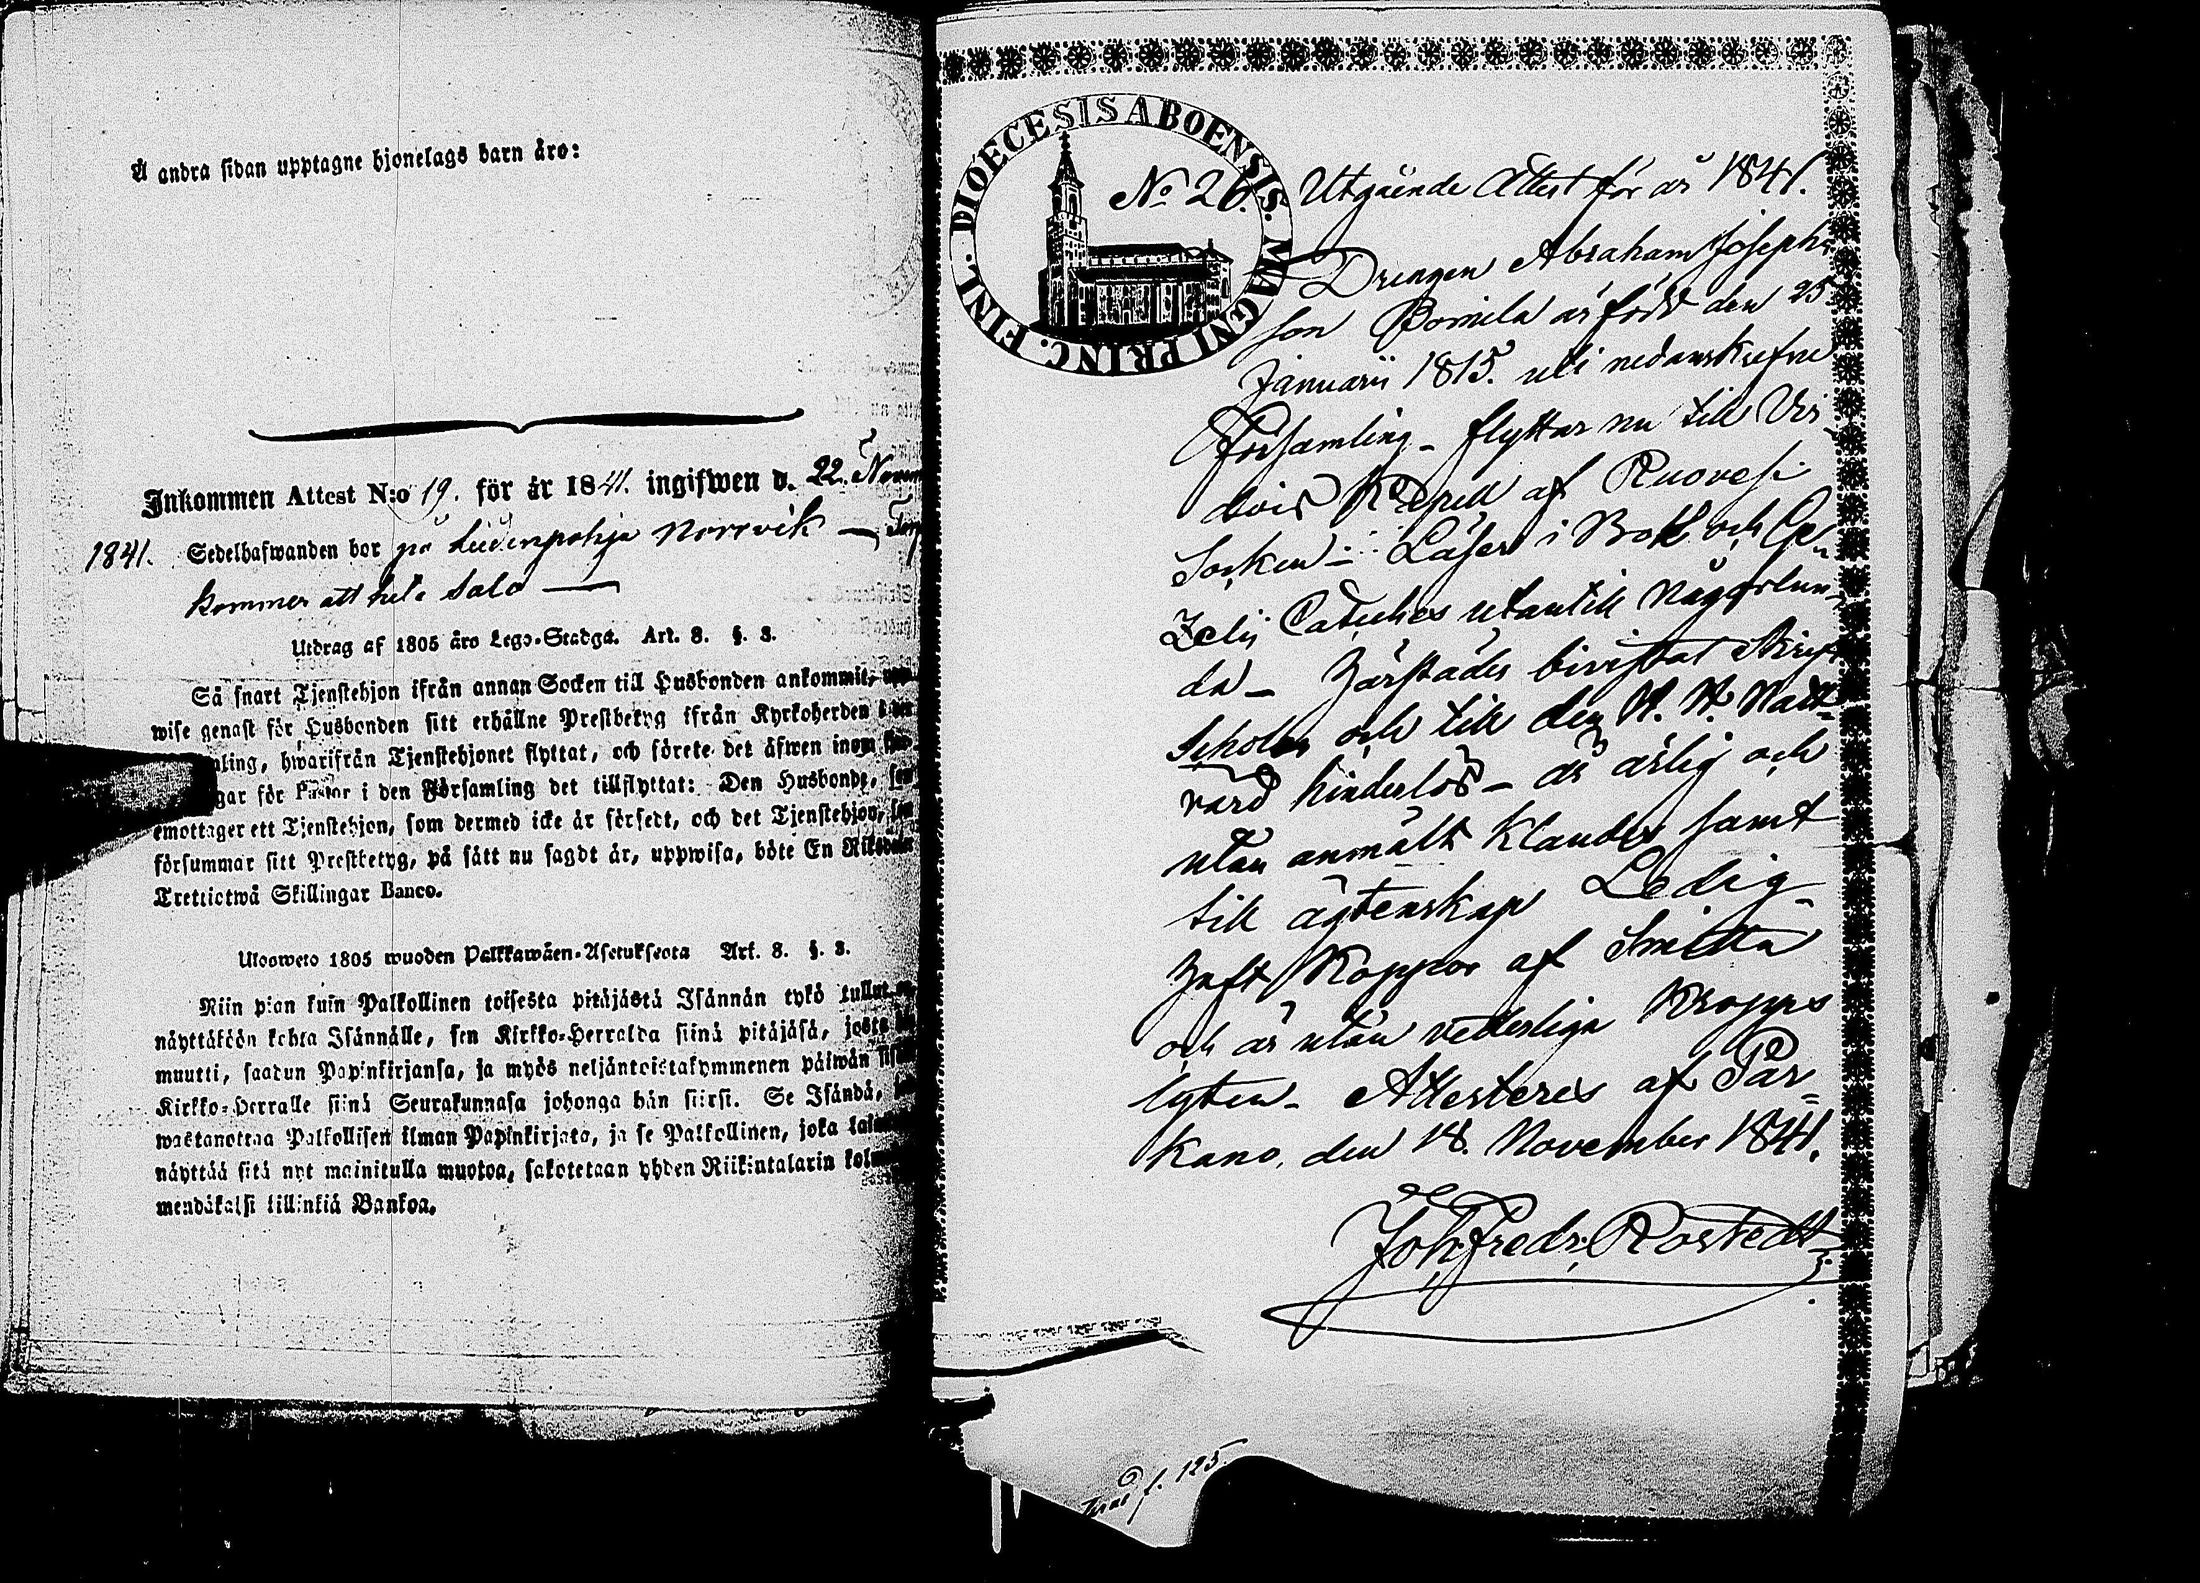 Å andra sidan upptagne hjonelags barn äro:
Inkommen Attest N:o 19. för år 1841. ingifwen d. 22. Novem
1841. Sedelhafwanden bor på Norrvik — Torp
kommer att heta Salo —
Utdrag af 1805 åro Lego-Stadga. Art. 8. §. 3.
Så snart Tjenstehjon ifrån annan Socken till Husbonden ankommit,
wise genast för Husbonden sitt erhållne Prestbetyg ifrån Kyrkoherden i
ling, hwarifrån Tjenstehjonet flyttat, och förete det äfwen inom
gar för Pastor i den Församling det tillflyttat: Den Husbonde,
emottager ett Tjenstehjon, som dermed icke är försedt, och det Tjenstehjon,
försummar sitt Prestbetyg, på sätt nu sagdt är, uppwisa, böte En Riksdaler
Trettiotwå Skillingar Banco.
Ulosweto 1805 wuoden Palkkawäen-Asetuksesta Art. 8. §. 3.
Niin pian kuin Palkollinen toisesta pitäjästä Isännän tykö tullut
näyttäköön kohta Isännälle, sen Kirkko-Herralda siinä pitäjäsä, josta
muutti, saadun Papinkirjansa, ja myös neljäntoistakymmenen päiwän
Kirkko-Herralle siinä Seurakunnasa johonga hän siirsi. Se Isändä,
wastanottaa Palkollisen ilman Papinkirjata, ja se Palkollinen, joka
näyttää sitä nyt mainitulla muotoa, sakotetaan yhden Riikintalarin
mendäkaksi killinkiä Bankoa.
DIOECESIS ABOENSIS. MAGNI PRINC. FINL.
No 26. Utgående Attest för år 1841.
Drengen Abraham Josephs
son Bomila är född den 25
Januarii 1815. uti nedanskrefne
Församling – flyttar nu till Vir
dois Kapell af Ruovesi
Socken – Läser i Bok och Ce
Zelij Cateches utantill någorlun
da – Härstädes bivistat Skrift
Scholor och till den H. H. Natt
vard hinderlös – är ärlig och
utan anmält klander samt
till ägtenskap Ledig
Haft Koppor af Smitta
och är utan vederliga Kropps
lyten – Attesteres af Par
kano, den 18. November 1841.
Joh. Fredr. Rostedt
f. 125.